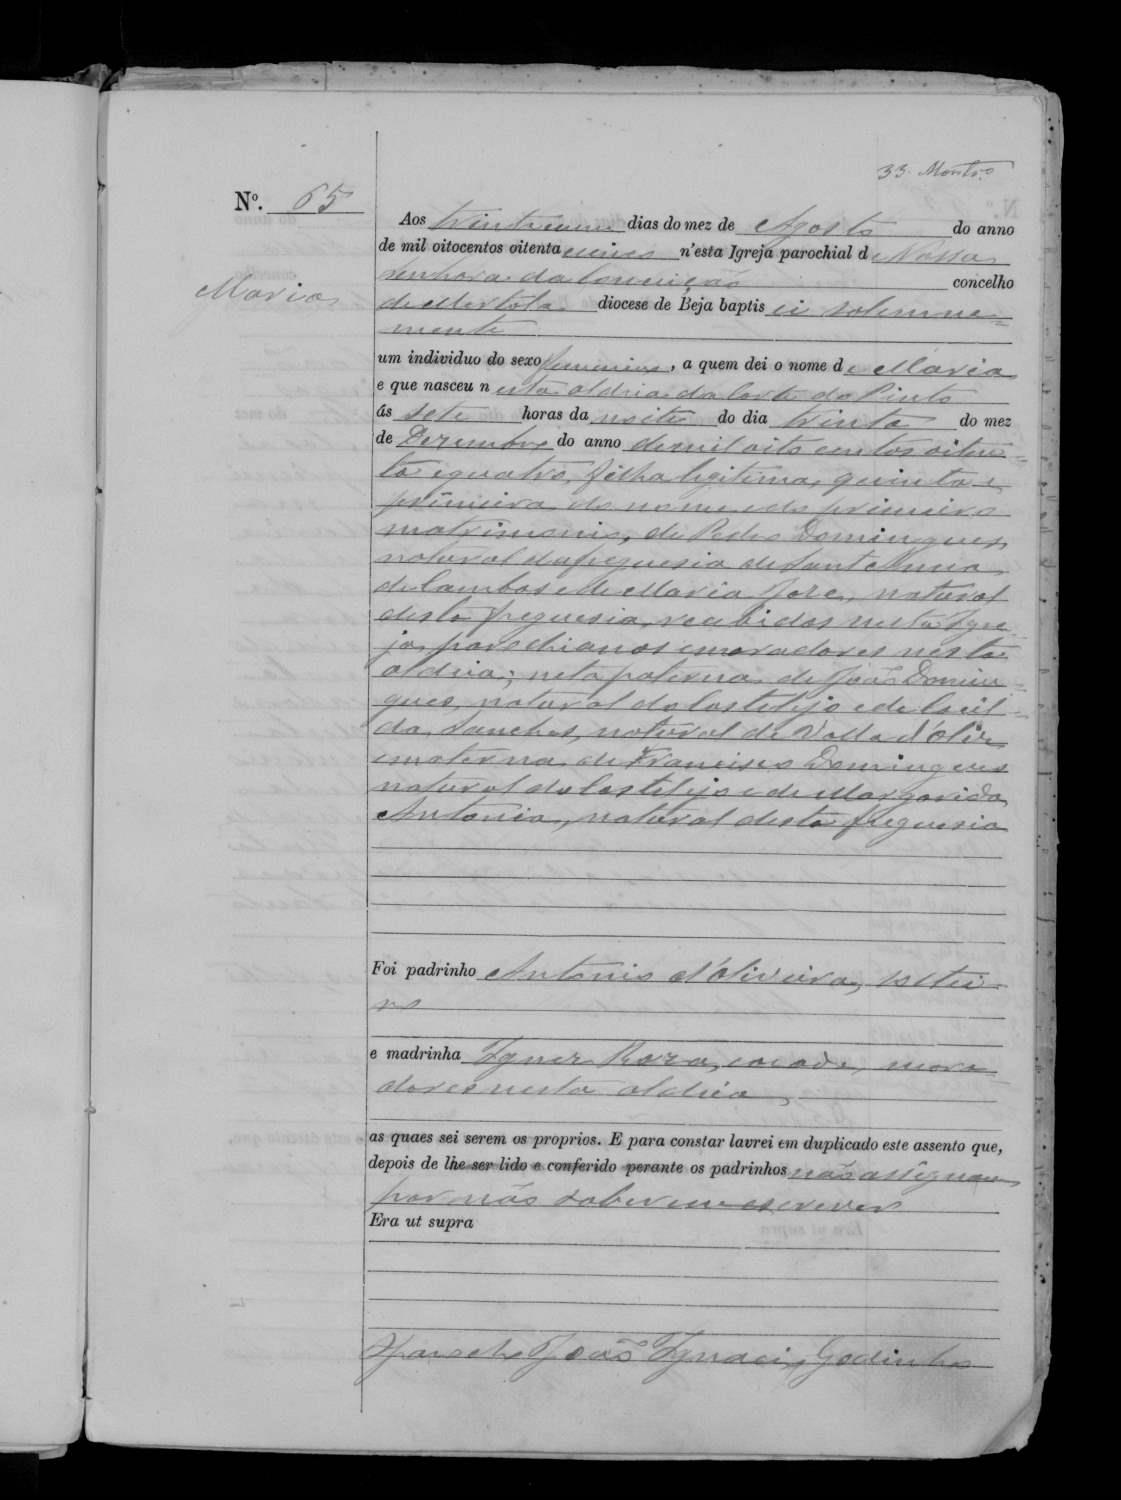 33. Montro
Nº. 65
Aos trinta e um dias do mez de Agosto do anno
de mil oitocentos oitenta e cinco n'esta Igreja parochial de Nossa
Senhora da Conceição concelho
Maria
de Mertola diocese de Beja baptisei solemne=
mente
um individuo do sexo femenino, a quem dei o nome de Maria
e que nasceu nesta aldeia da Corte do Pinto
ás sete horas da noite do dia trinta do mez
de Dezembro do anno de mil oito centos oiten=
ta e quatro, filha legitima, quinta e
primeira do nome e do primeiro
matrimonio, de Pedro Domingues,
natural da freguesia de Sant'Anna
de Cambas e de Maria Jose, natural
desta freguesia, recebidos nesta Igre
ja, parochianos e moradores nesta
aldeia; neta paterna de João Domin=
gues, natural do Castelejo e de Casil=
da Sanches, natural de Valle d'Olir
e materna de Francisco Domingues
natural do Castelejo e de Margarida
Antonia, natural desta freguesia
Foi padrinho Antonio d'Oliveira, soltei
ro
e madrinha Ignez Roza, casada, mora
dores nesta aldeia,
as quaes sei serem os proprios. E para constar lavrei em duplicado este assento que,
depois de lhe ser lido e conferido perante os padrinhos não assignam
por não saberem escrever
Era ut supra
O Parocho João Ignacio Godinho